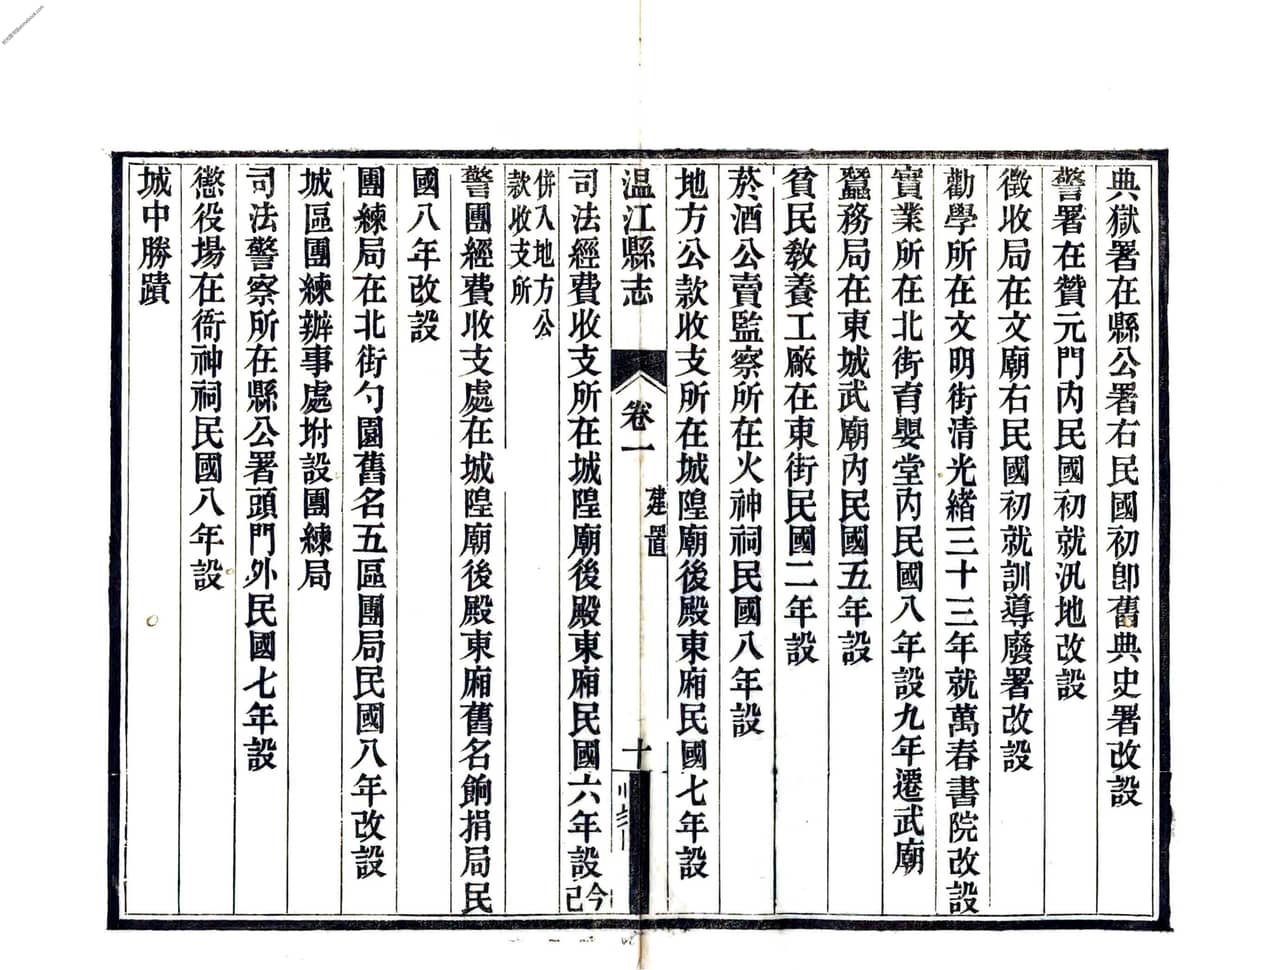 典獄署在縣公署右民國初卽舊典史署改設
警署在贊元門內民國初就汛地改設
徵收局在文廟右民國初就訓導廢署改設
勸學所在文明街清光緒三十三年就萬春書院改設
實業所在北街育嬰堂內民國八年設九年遷武廟
蠶務局在東城武廟內民國五年設
貧民教養工廠在東街民國二年設
菸酒公賣監察所在火神祠民國八年設
地方公款收支所在城隍廟後殿東廂民國七年設
溫江縣志 卷一 建置 十
司法經費收支所在城隍廟後殿東廂民國六年設今已
併入地方公
款收支所
警團經費收支處在城隍廟後殿東廂舊名餉捐局民
國八年改設
團練局在北街勺園舊名五區團局民國八年改設
城區團練辦事處坿設團練局
司法警察所在縣公署頭門外民國七年設
懲役場在衙神祠民國八年設
城中勝蹟